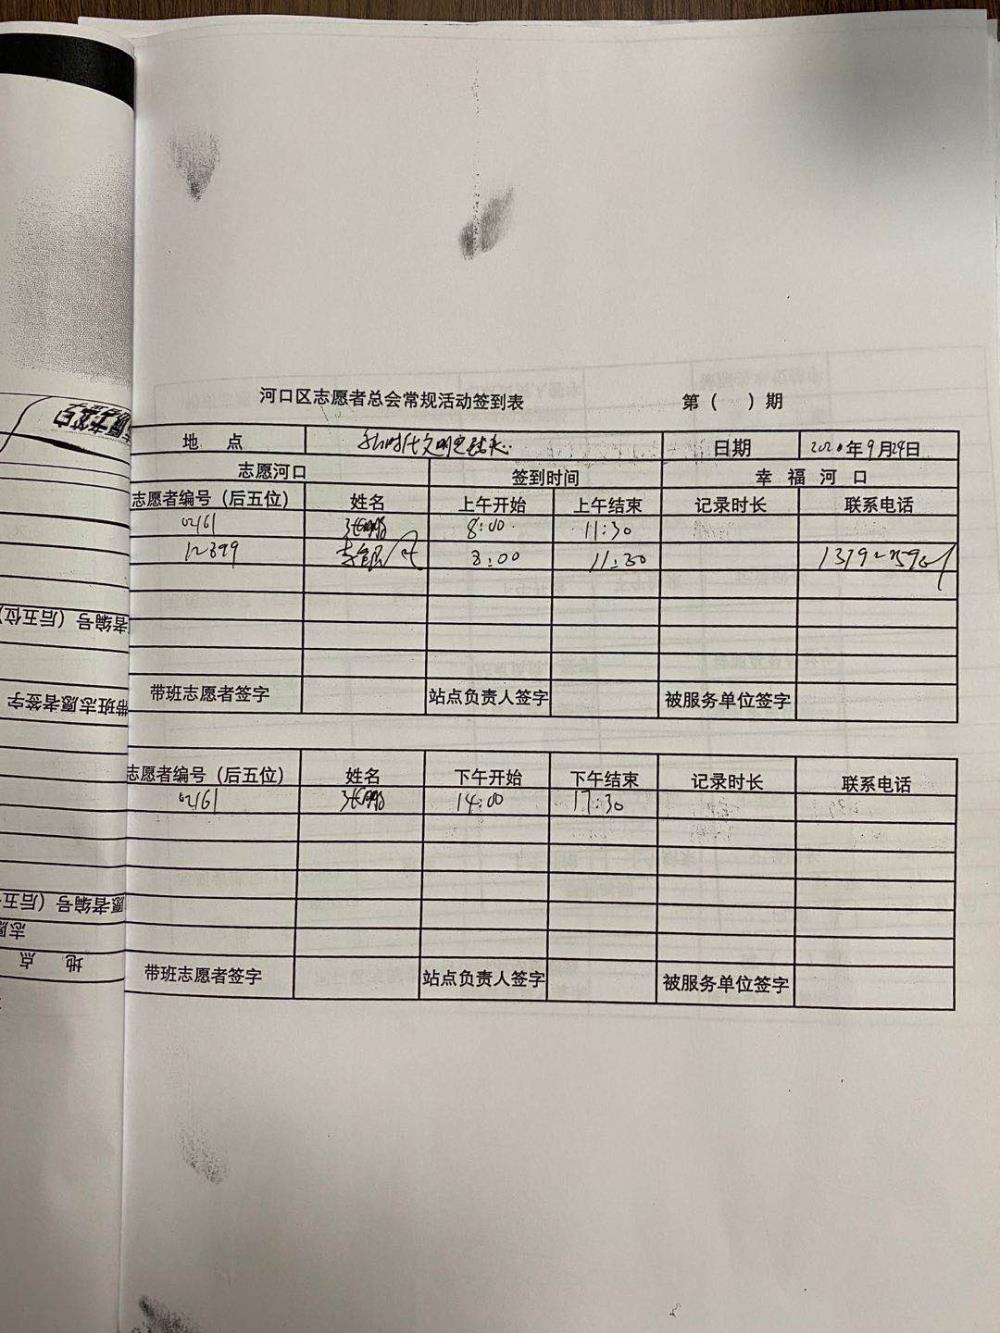 河口区志愿者总会常规活动签到表 第（ ）期
地 点 日期 2020年9月29日
志愿河口 签到时间 幸 福 河 口
志愿者编号（后五位） 姓名 上午开始 上午结束 记录时长 联系电话
02161 8:00 11:30
12399 8:00 11:30
带班志愿者签字 站点负责人签字 被服务单位签字
志愿者编号（后五位） 姓名 下午开始 下午结束 记录时长 联系电话
02161 14:00 17:30
带班志愿者签字 站点负责人签字 被服务单位签字
者编号（后五位）
带班志愿者签字
愿者编号（后五
志愿
地 点